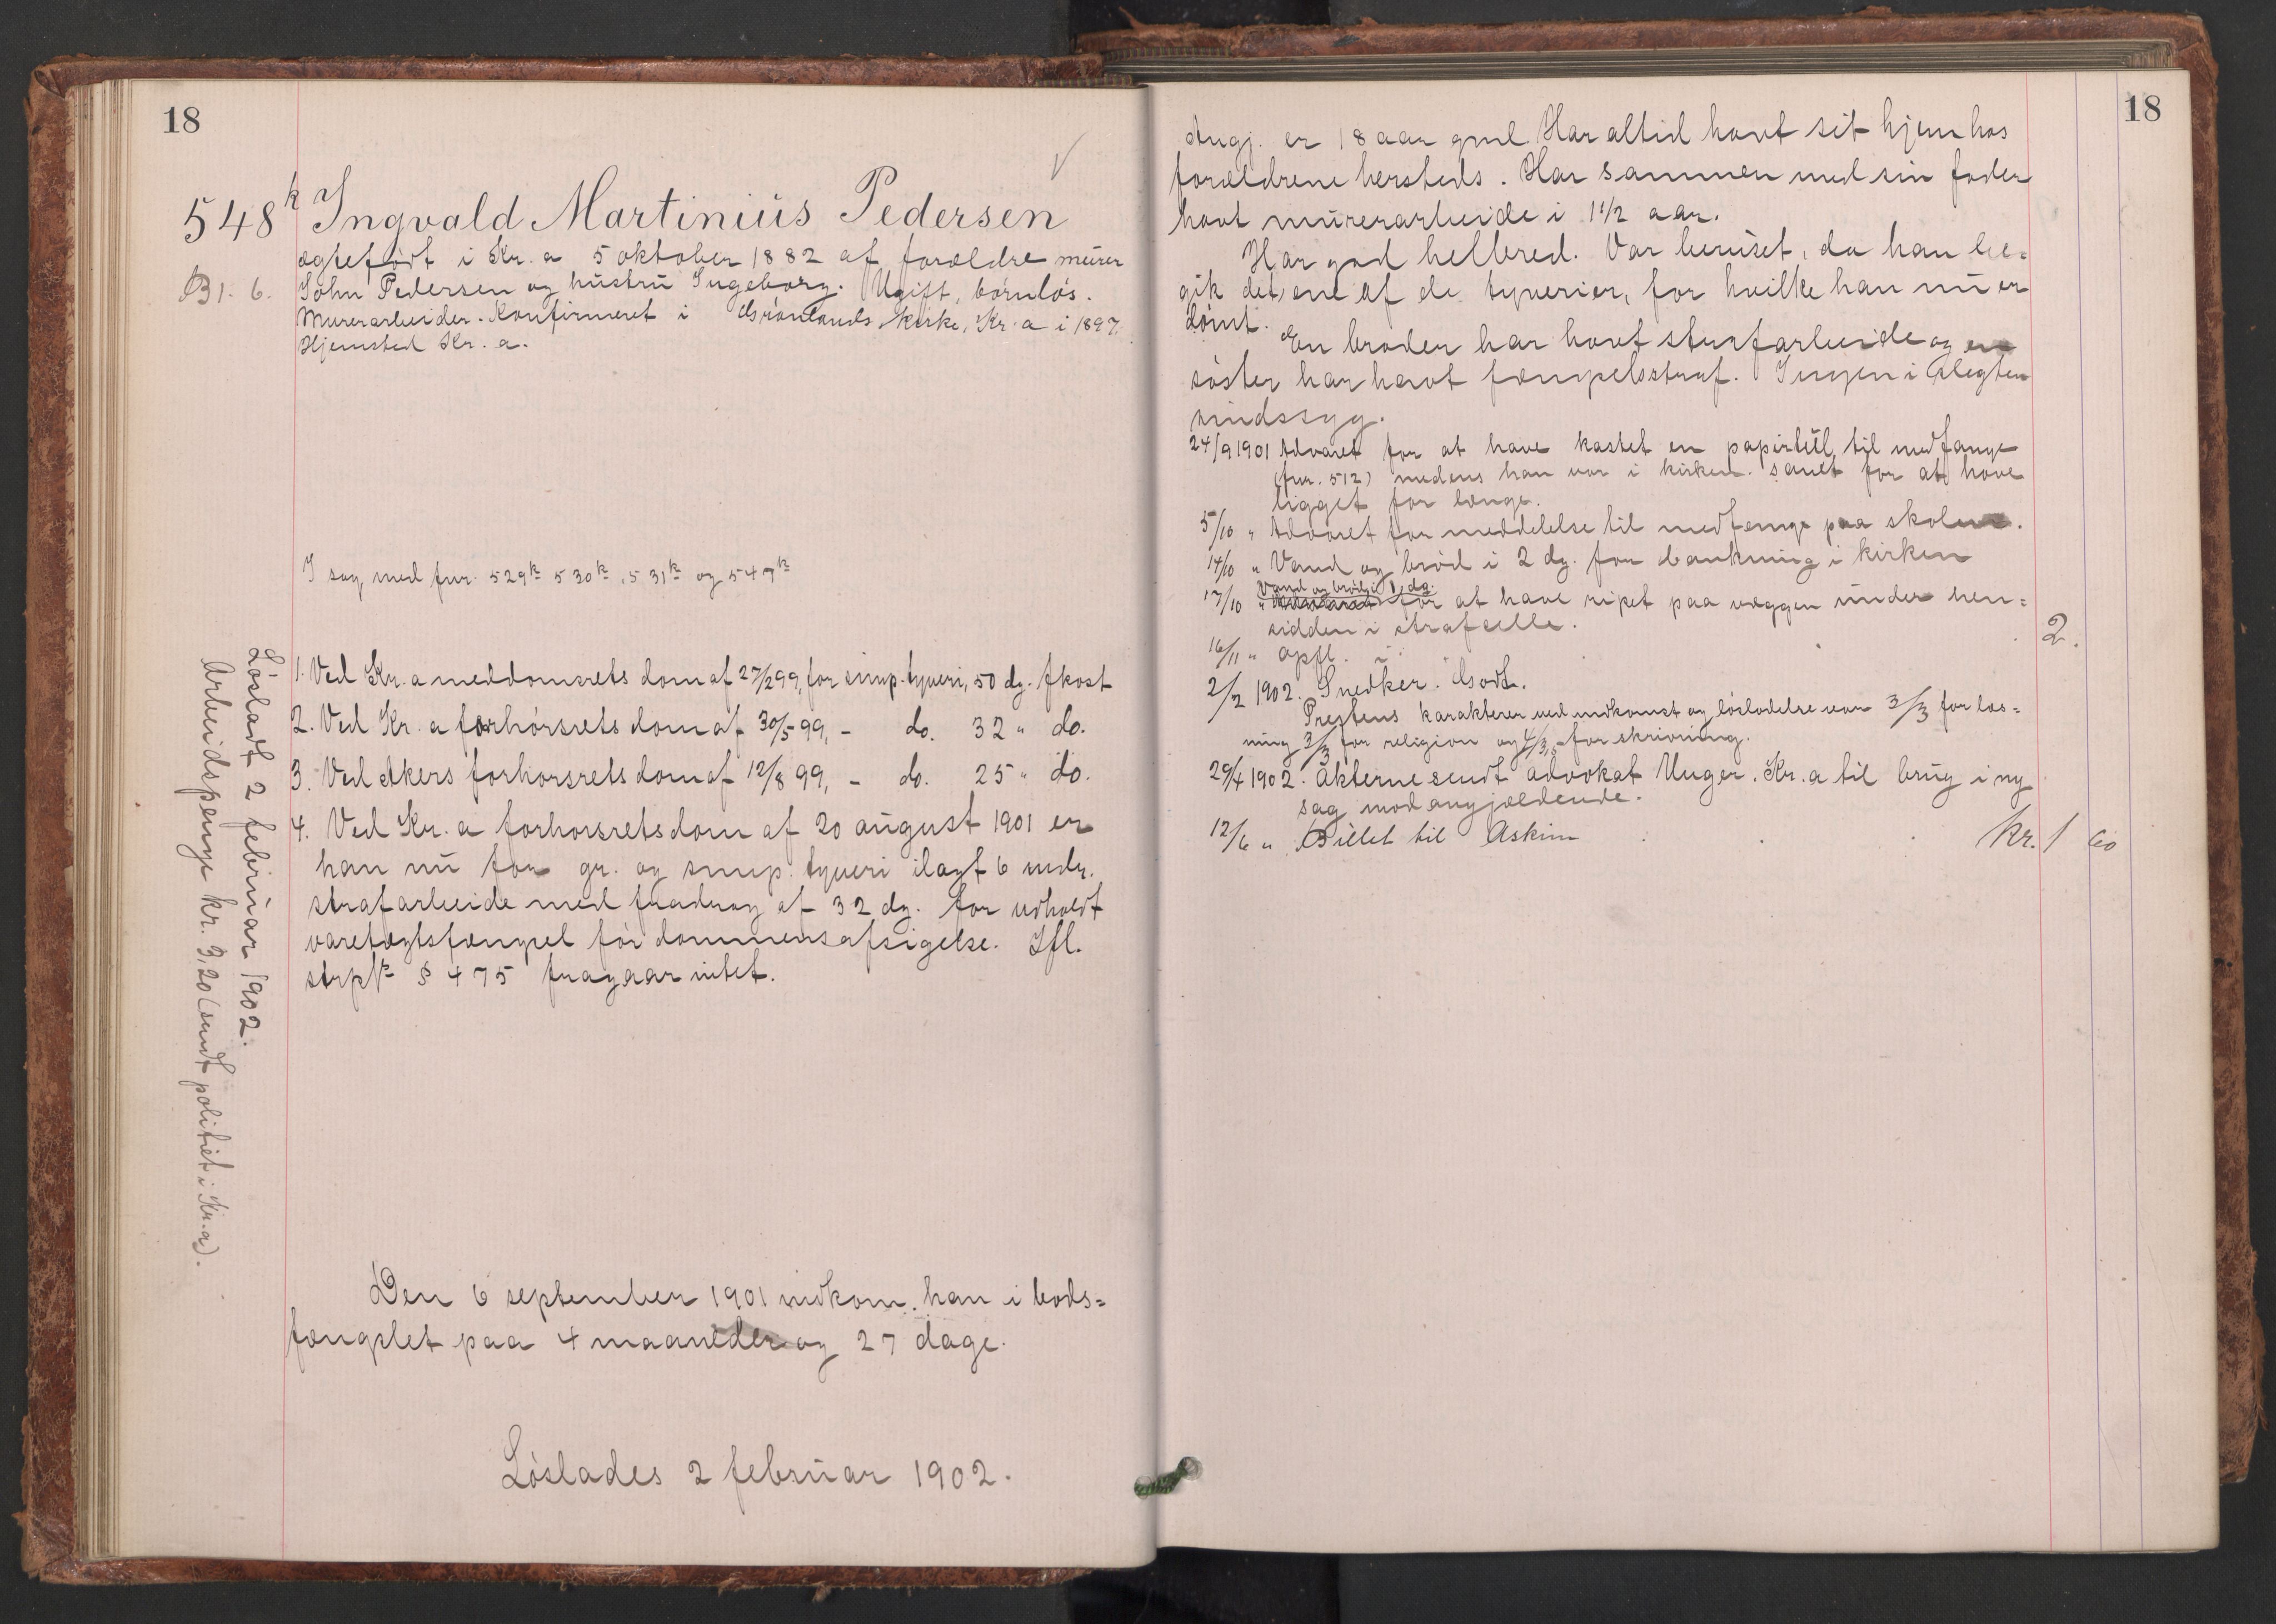 18
548k Ingvald Martinius Pedersen
ægtefødt i Kr.a 5 oktober 1882 af forældre murer
B 1. 6. John Pedersen og hustru Ingeborg. Ugift, børnløs.
Murerarbeider. Konfirmeret i Grønlands kirke, Kr.a i 1897.
Hjemsted Kr.a.
I sag med fnr. 529k 530k, 531k og 547k
1. Ved Kr.a meddomsrets dom af 27/2 99, for simp. tyveri, 50 dg. fkost
2. Ved Kr.a forhørsrets dom af 30/5 99, - do. 32 " do.
3. Ved Akers forhørsrets dom af 12/8 99, - do. 25 " do.
4. Ved Kr.a forhørsrets dom af 20 august 1901 er
han nu for gr. og simp. tyveri ilagt 6 mdr.
strafarbeide med fradrag af 32 dg. for udholdt
varetægtsfængsel før dommens afsigelse. Ifl.
strpl § 475 fragaar intet.
Løsladt 2 februar 1902.
Arbeidspenge kr. 3,20 (sendt politiet i Kr.a).
Den 6 september 1901 indkom han i bods=
fængslet paa 4 maaneder og 27 dage.
Løslades 2 februar 1902.
18
Angj. er 18 aar gml. Har altid havt sit hjem hos
forældrene hersteds. Har sammen med sin fader
havt murerarbeide i 1 1/2 aar.
Har god helbred. Var beruset, da han be=
gik det ene af de tyverier, for hvilke han nu er
dømt.
En broder har havt strafarbeide og en
søster har havt fængselsstraf. Ingen i slegten
sindssyg.
24/9 1901 Advaret for at have kastet en papirtull til medfange
(fnr. 512) medens han var i kirken. samt for at have
ligget for længe.
5/10 " Advaret for meddelelse til medfange paa skolen.
14/10 " Vand og brød i 2 dg. for bankning i kirken
17/10 " Vand og brød i 1 dg. for at have ripet paa væggen under hen=
sidden i strafcelle.
16/11 " Opfl. i 2.
2/2 1902. Snedker. Godt.
Prestens karakterer ved indkomst og løsladelse var 3/3 for læs=
ning 3/3 for religion og 4/3,5 for skrivning.
29/4 1902. Akterne sendt advokat Unger. Kr.a til brug i ny
sag mod angjældende.
12/6 " Billet til Askim kr. 1 60